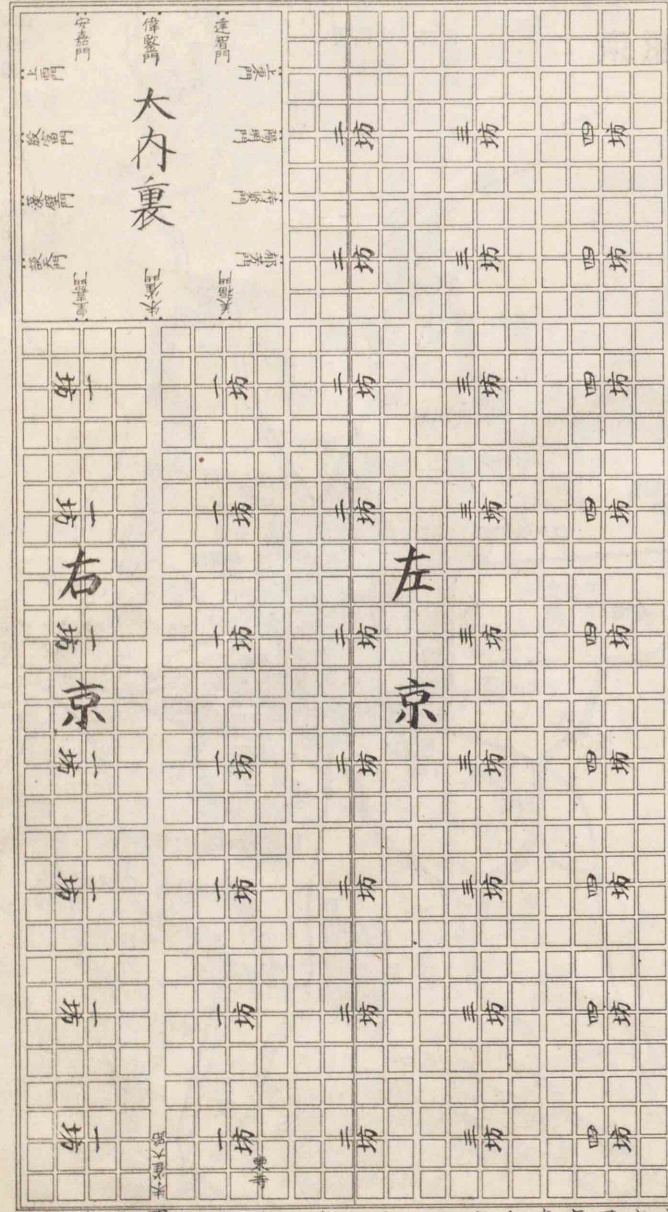 安嘉門
偉鑒門
達智門
上西門
上東門
大内裏
殷富門
陽明門
藻壁門
待賢門
談天門
郁芳門
皇嘉門
朱雀門
美福門
二坊 三坊 四坊
二坊 三坊 四坊
一坊 一坊 二坊 三坊 四坊
一坊 一坊 二坊 三坊 四坊
右京
左京
一坊 一坊 二坊 三坊 四坊
一坊 一坊 二坊 三坊 四坊
一坊 一坊 二坊 三坊 四坊
一坊 一坊 二坊 三坊 四坊
一坊 一坊 二坊 三坊 四坊
朱雀大路
東寺